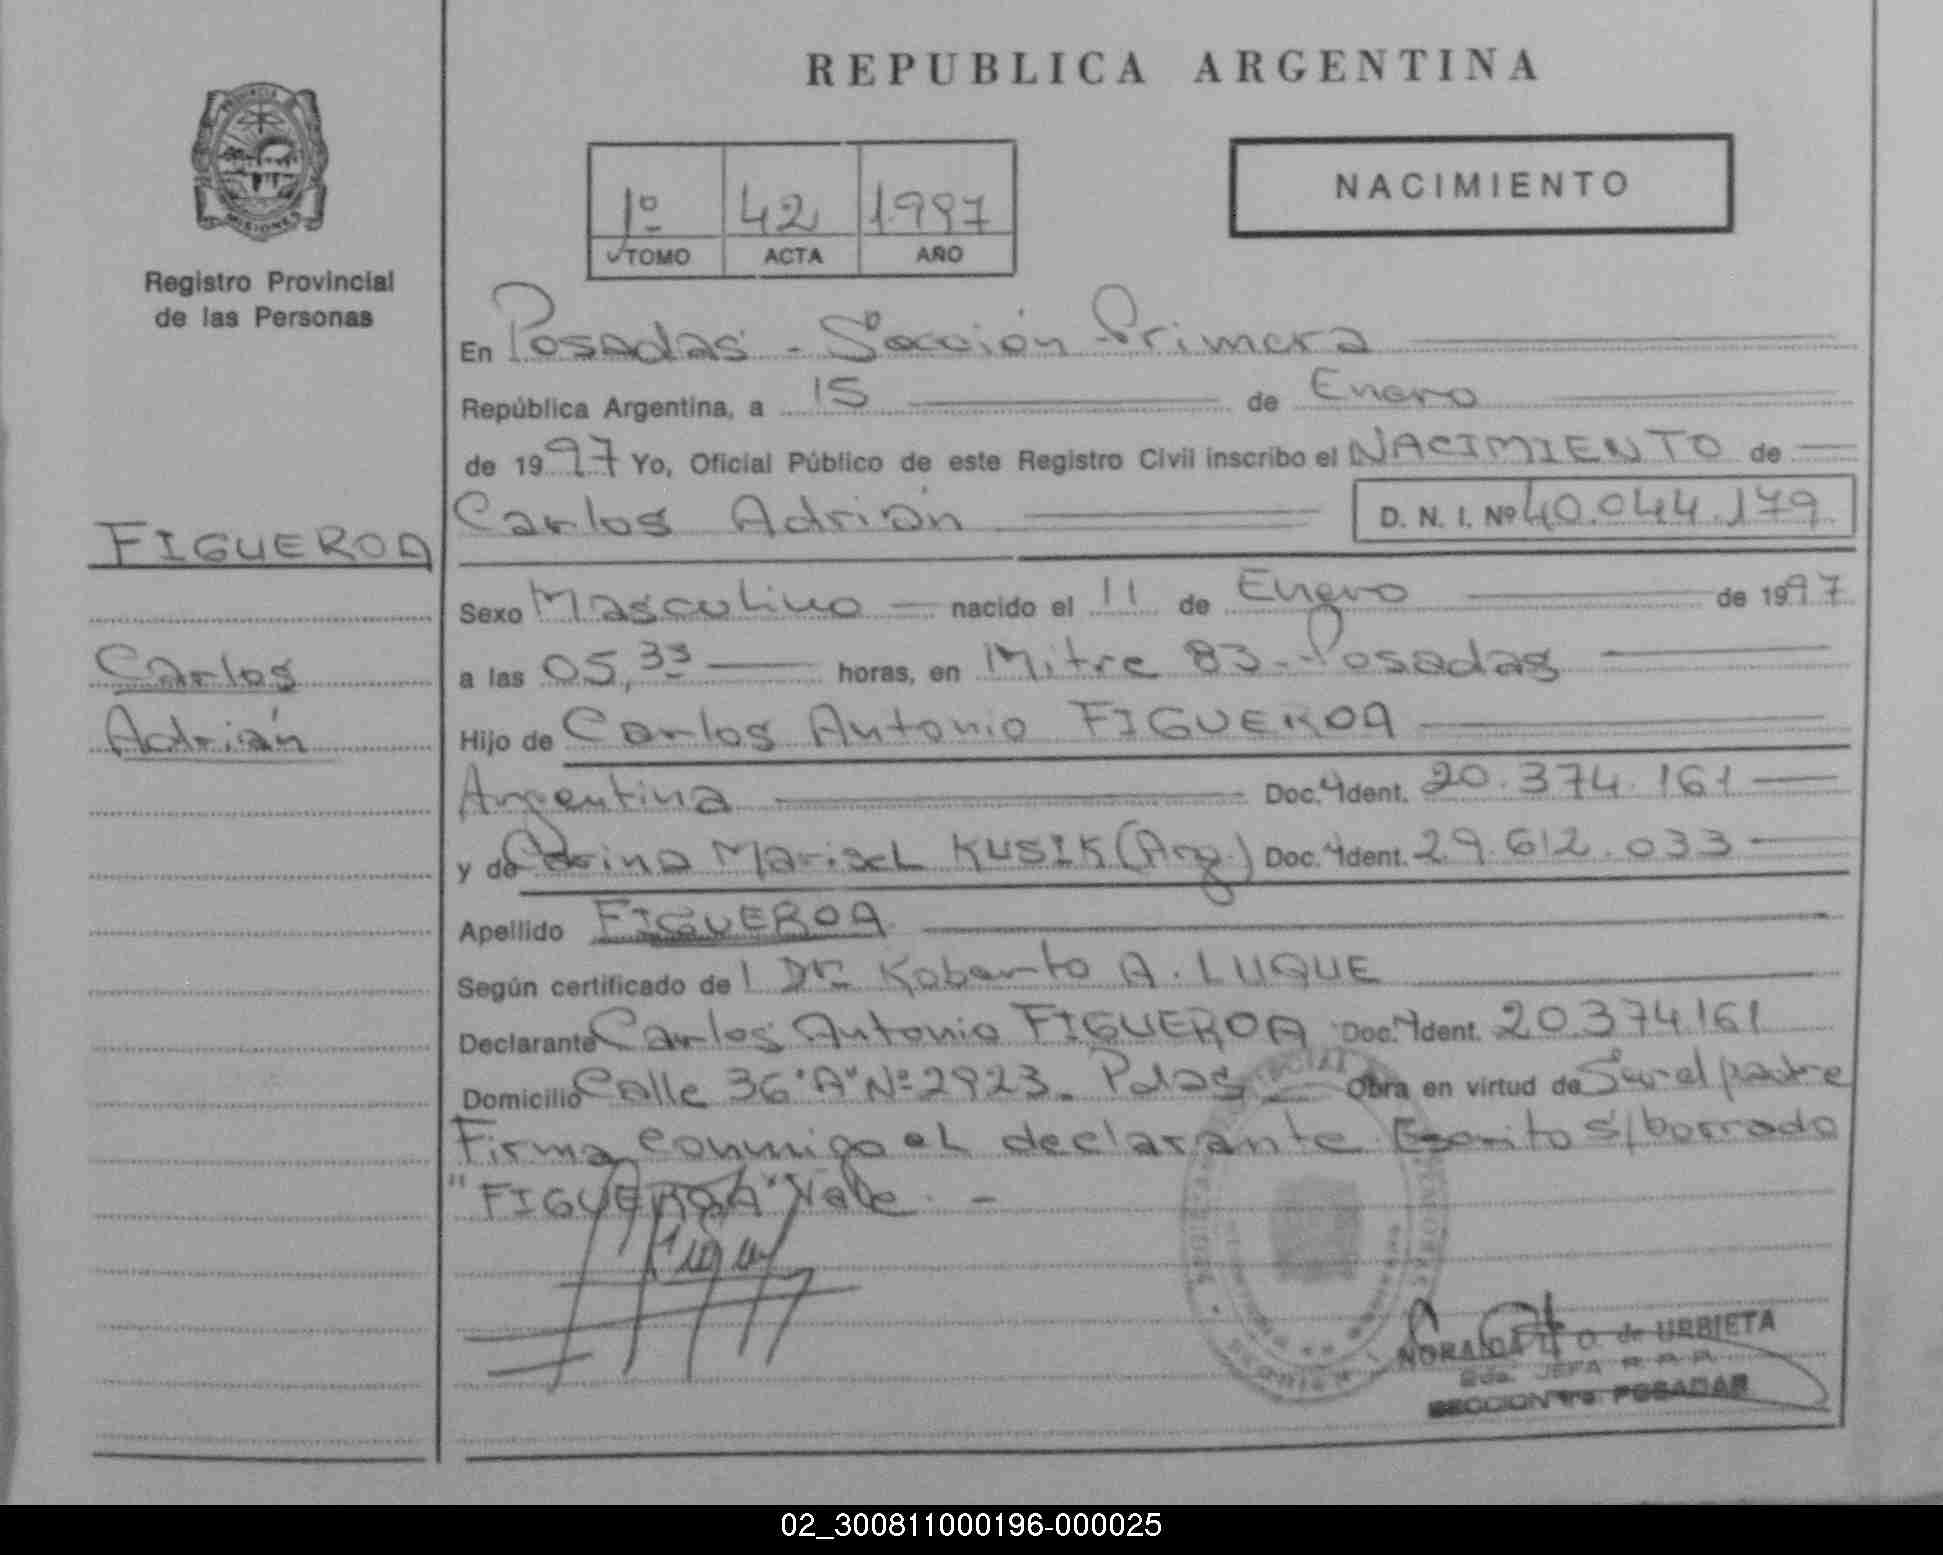 REPUBLICA ARGENTINA
PROVINCIA DE
MISIONES
Registro Provincial
de las Personas
1º 42 1997
TOMO ACTA AÑO
NACIMIENTO
En Posadas - Sección Primera
República Argentina, a 15 de Enero
de 1997 Yo, Oficial Público de este Registro Civil inscribo el NACIMIENTO de
FIGUEROA
Carlos Adrián D. N. I. Nº 40.044.179
Sexo Masculino nacido el 11 de Enero de 1997
Carlos
a las 05,35 horas, en Mitre 83 - Posadas
Adrián
Hijo de Carlos Antonio FIGUEROA
Argentina Doc. Ident. 20.374.161
y de Marisel KUSIK (Arg.) Doc. Ident. 29.612.033
Apellido FIGUEROA
Según certificado del Dr. Roberto A. LUQUE
Declarante Carlos Antonio FIGUEROA Doc. Ident. 20.374161
Domicilio Calle 36 "A" Nº 2923 - Pdas Obra en virtud de Ser el padre
Firma conmigo el declarante. Escrito s/borrado
"FIGUEROA" Vale. -
O. de URBIETA
JEFA
SECCION 1ra POSADAS
02_300811000196-000025